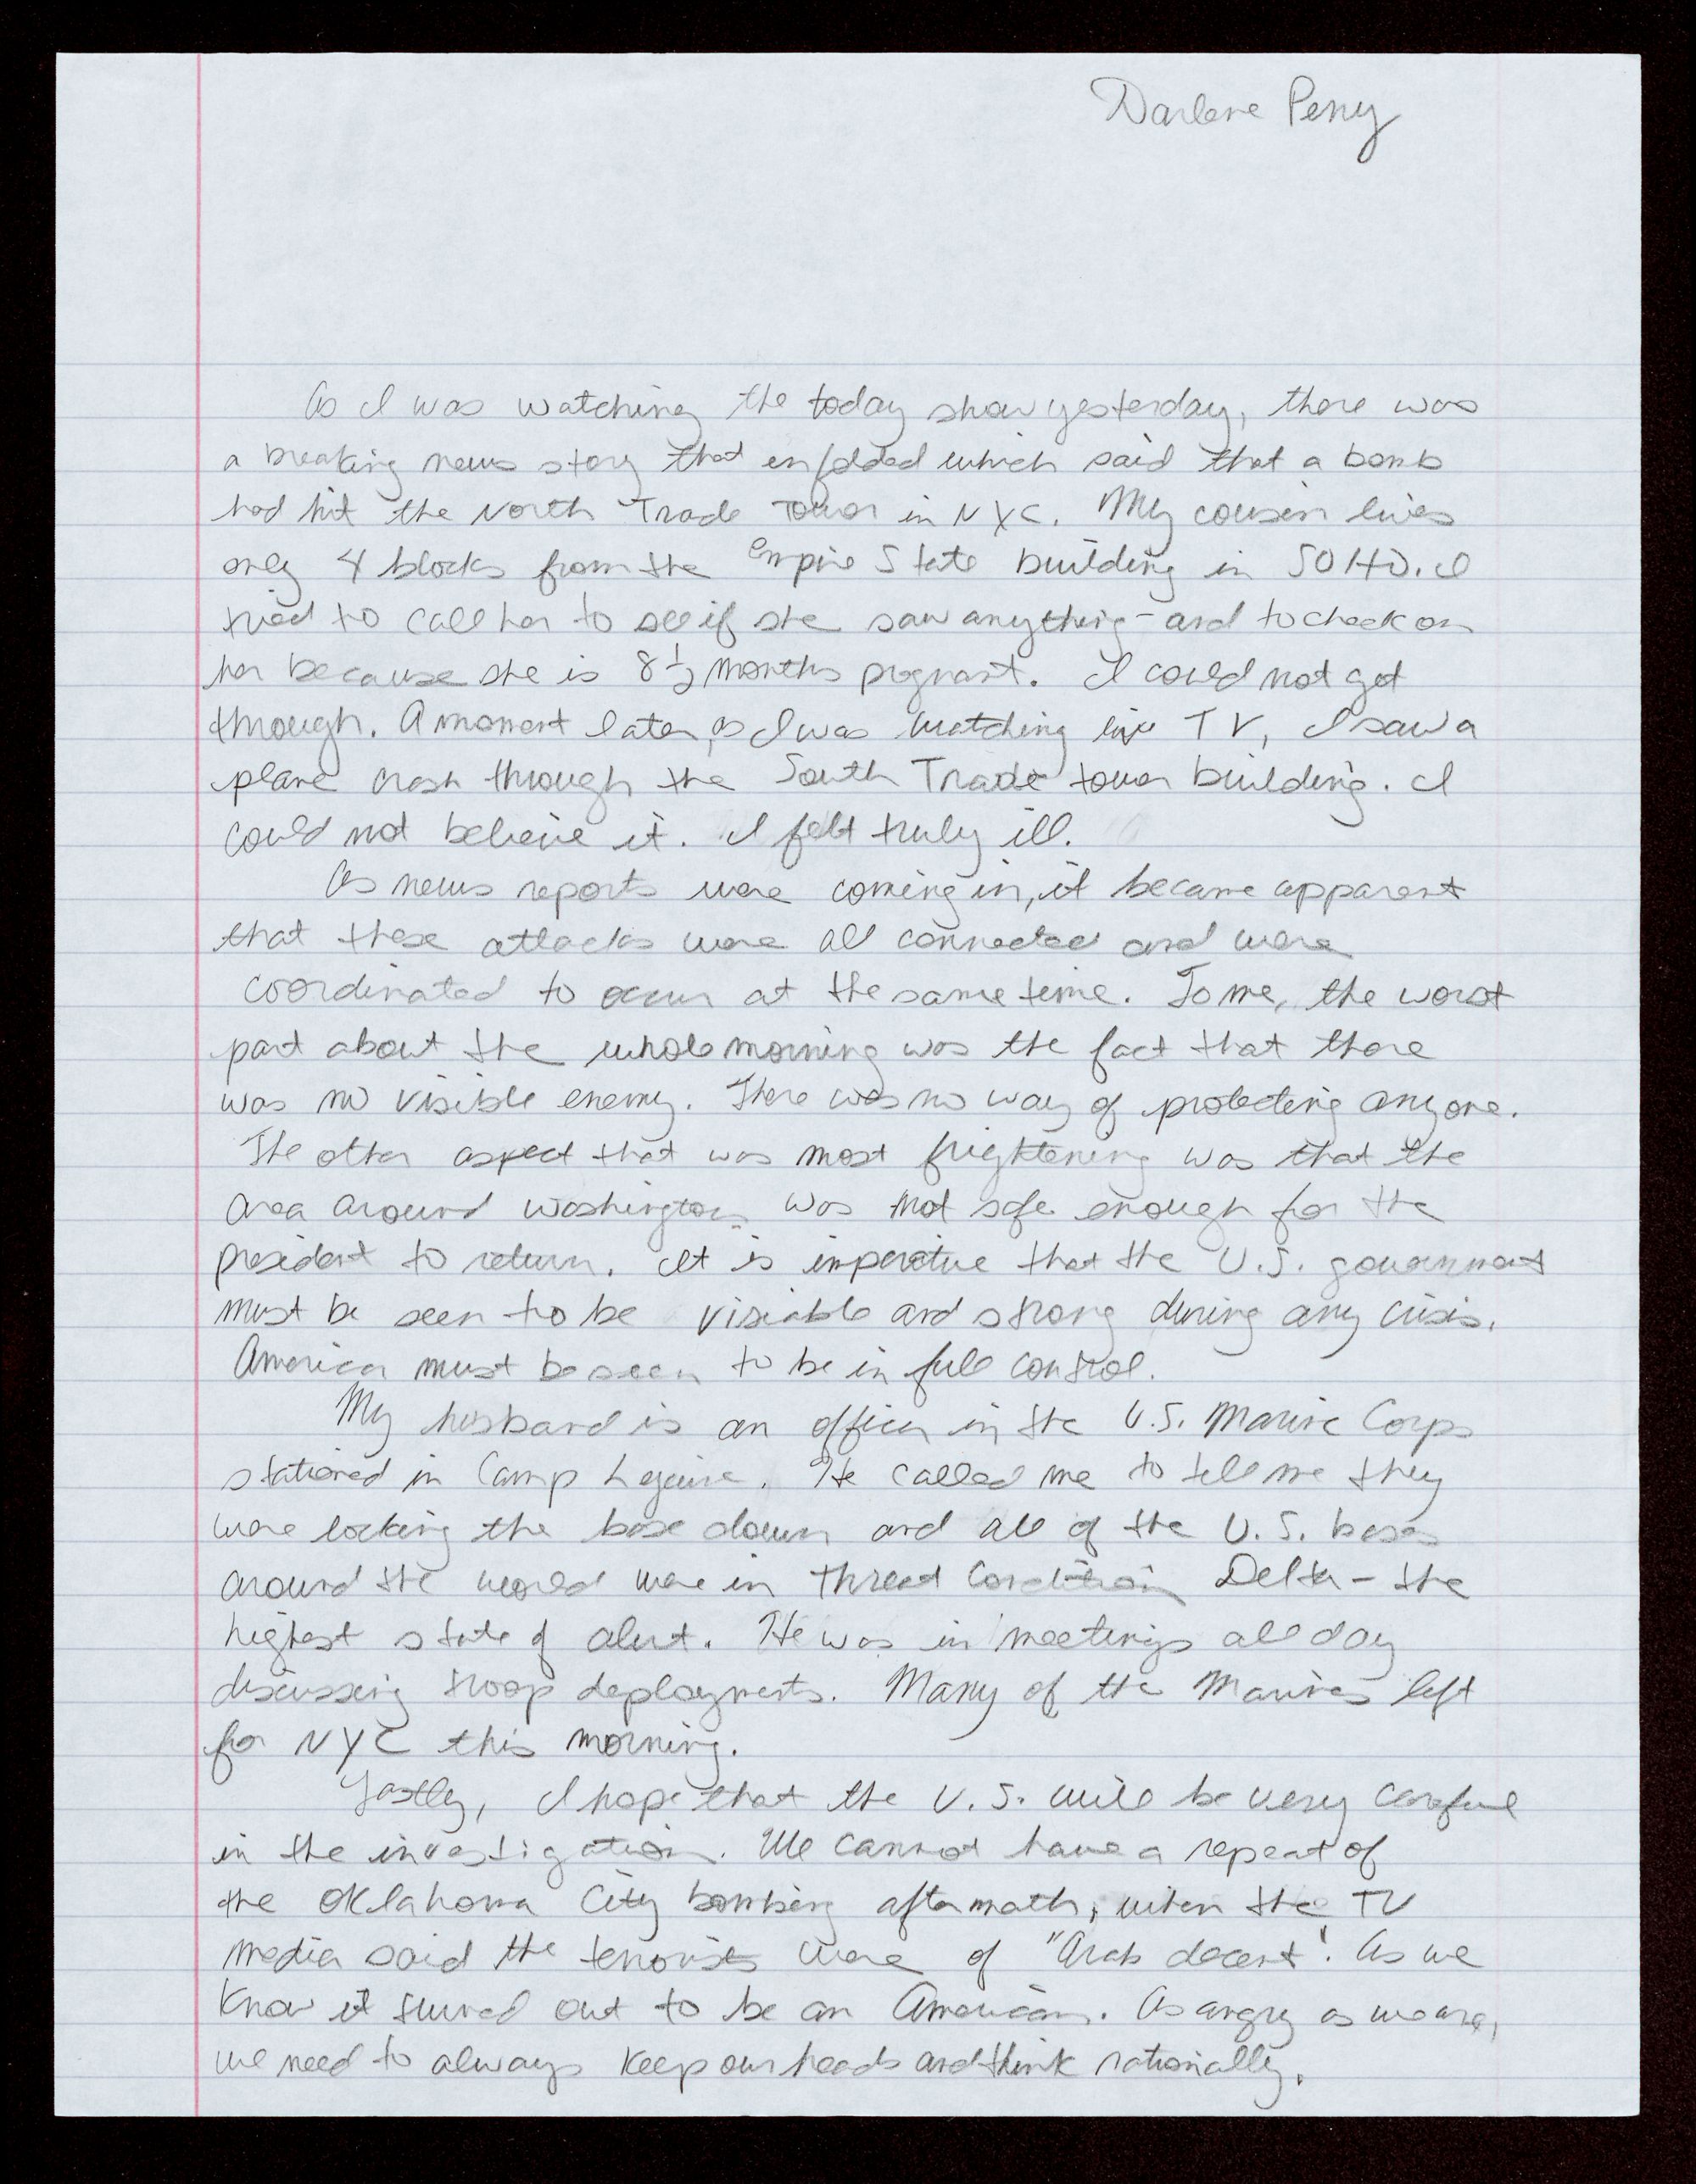 Darlene Perry
As I was watching the today show yesterday, there was
a breaking news story that enfolded which said that a bomb
had hit the North Trade Tower in NYC. My cousin lives
only 4 blocks from the Empire State building in SOHO. I
tried to call her to see if she saw anything - and to check on
her because she is 8 1/2 months pregnant. I could not get
through. A moment later, as I was watching live TV, I saw a
plane crash through the South Trade tower building. I
could not believe it. I felt truly ill.
As news reports were coming in, it became apparent
that these attacks were all connected and were
coordinated to occur at the same time. To me, the worst
part about the whole morning was the fact that there
was no visible enemy. There was no way of protecting anyone.
The other aspect that was most frightening was that the
area around Washington was not safe enough for the
president to return. It is imperative that the U.S. government
must be seen to be visiable and strong during any crisis.
America must be seen to be in full control.
My husband is an officer in the U.S. Marine Corps
stationed in Camp Lejeune. He called me to tell me they
were locking the base down and all of the U.S. bases
around the world were in Threat Condition Delta - the
highest state of alert. He was in meetings all day
discussing troop deployments. Many of the Marines left
for NYC this morning.
Lastly, I hope that the U.S. will be very careful
in the investigation. We cannot have a repeat of
the Oklahoma City bombing aftermath, when the TV
media said the terrorists were of "Arab decent". As we
know it turned out to be an American. As angry as we are,
we need to always keep our heads and think rationally.